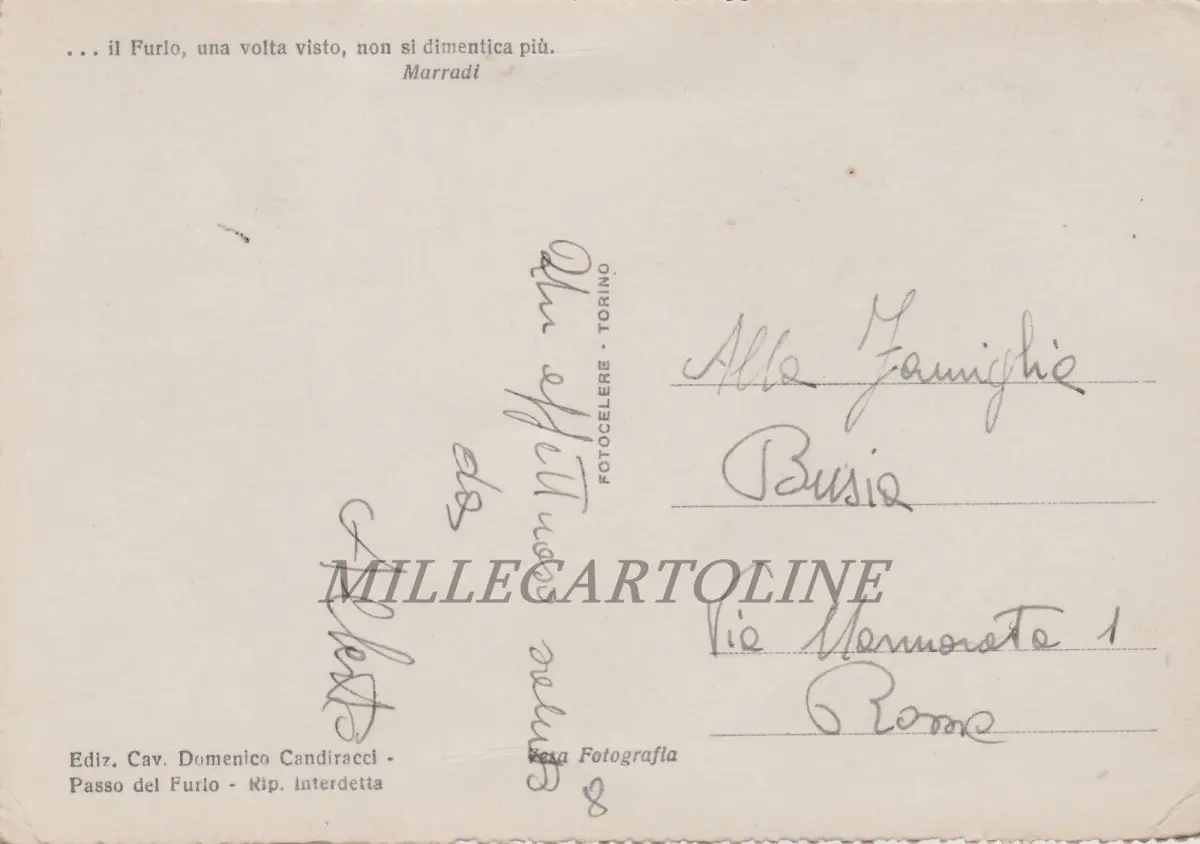 ... il Furlo, una volta visto, non si dimentica più.
Marradi
Un affettuoso saluto
da
Alberto
FOTOCELERE · TORINO
Alla Famiglia
Busia
Via Marmorata 1
Roma
MILLECARTOLINE
Ediz. Cav. Domenico Candiracci -
Passo del Furlo - Rip. Interdetta
Vera Fotografia
8